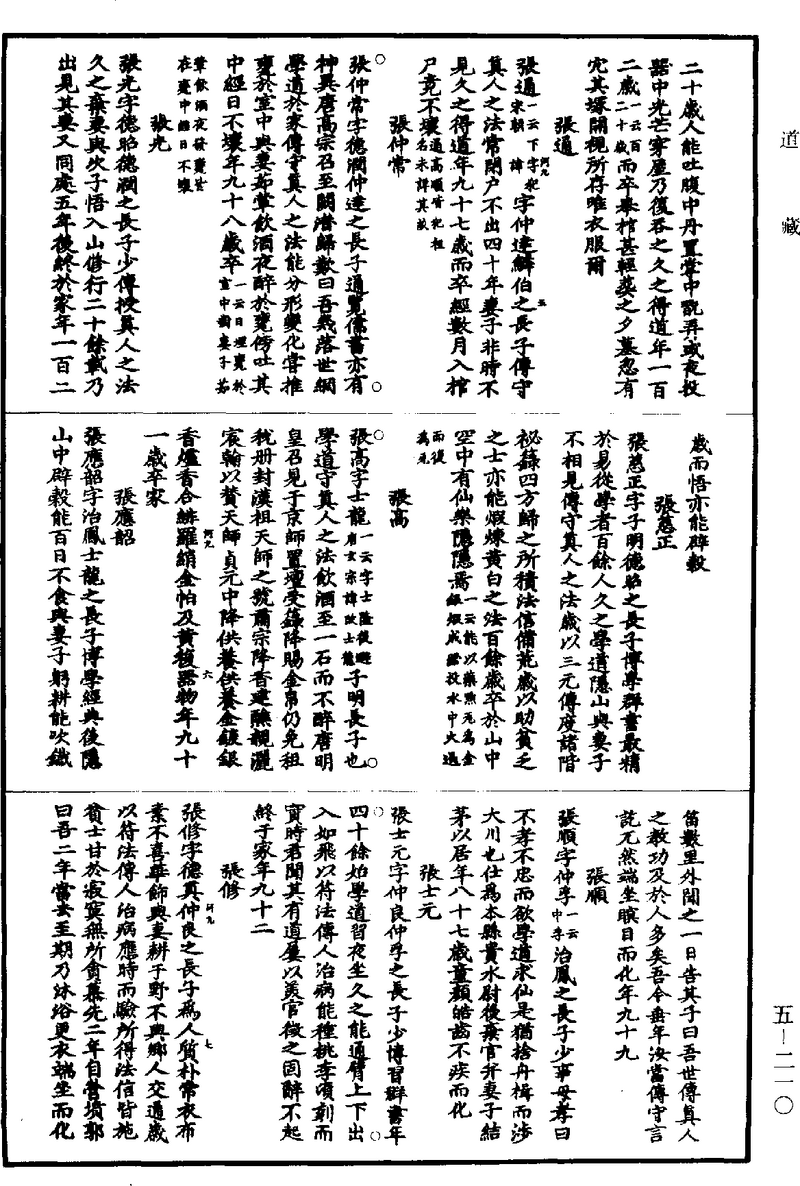 道藏
二十歲人能吐腹中丹置掌中翫弄或夜投
器中光芒穿屋乃復吞之久之得道年一百
二歲一云百二十歲而卒舉棺甚輕葬之夕墓忽有
穴其壙開視所存唯衣服爾
張通
張通一云下字犯宋朝諱 字仲達麟伯之長子傳守
真人之法常閉戶不出四十年妻子非時不
見久之得道年九十七歲而卒經數月入棺
尸竟不壞
張仲常
張仲常字德潤仲達之長子通覽儒書亦有
神異唐高宗召至闕潛歸歎曰吾幾落世網
學道於家傳守真人之法能分形變化嘗推
甕於室中與妻茹葷飲酒夜醉於甕傍吐其
中經日不壞年九十八歲卒
張光
張光字德昭德潤之長子少傳授真人之法
久之棄妻與次子悟入山修行二十餘載乃
出見其妻又同處五年後終於家年一百二
歲而悟亦能辟穀
張慈正
張慈正字子明德昭之長子博學群書最精
於易從學者百餘人久之學道隱山與妻子
不相見傳守真人之法歲以三元傳度諸階
祕籙四方歸之所積法信備荒歲以助貧乏
之士亦能煅煉黃白之法百餘歲卒於山中
空中有仙樂隱隱焉
張高
張高字士龍 子明長子也
學道守真人之法飲酒至一石而不醉唐明
皇召見于京師置壇受籙降賜金帛仍免租
稅册封漢祖天師之號肅宗降香建醮親灑
宸翰以贊天師貞元中降供養供養金鍍銀
香爐香合緋羅綃金帕及黃複器物年九十
一歲卒家
張應韶
張應韶字治鳳士龍之長子博學經典後隱
山中辟穀能百日不食與妻子躬耕能吹鐵
笛數里外聞之一日告其子曰吾世傳真人
之教功及於人多矣吾今垂年汝當傳守言
訖兀然端坐瞑目而化年九十九
張順
張順字仲孚一云中孚治鳳之長子少事母孝曰
不孝不忠而欲學道求仙是猶捨舟楫而涉
大川也仕為本縣貴水尉後棄官弃妻子結
茅以居年八十七歲童顏皓齒不疾而化
張士元
張士元字仲良仲孚之長子少博習群書年
四十餘始學道習夜坐久之能通臂上下出
入如飛以符法傳人治病能種桃李頃刻而
實時君聞其有道屢以美官徵之固辭不起
終于家年九十二
張修
張修字德真仲良之長子為人質朴常衣布
素不喜華飾與妻耕于野不與鄉人交通歲
以符法傳人治病應時而驗所得法信皆施
貧士甘於寂寞無所貪慕先二年自營墳郭
曰吾二年當去至期乃沐浴更衣端坐而化
五－二一〇